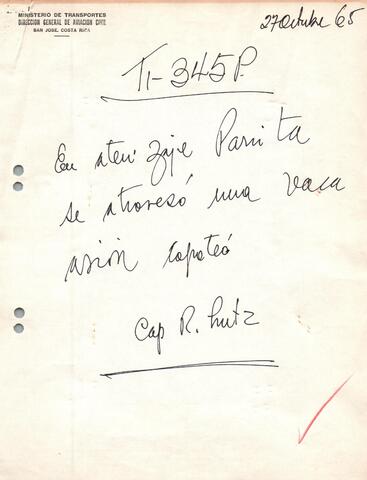 MINISTERIO DE TRANSPORTES
DIRECCION GENERAL DE AVIACION CIVIL
SAN JOSE, COSTA RICA
27 Octubre 65
TI-345P.
En aterizaje Parrita
se atravesó una vaca
avión capoteó
Cap R. Lutz